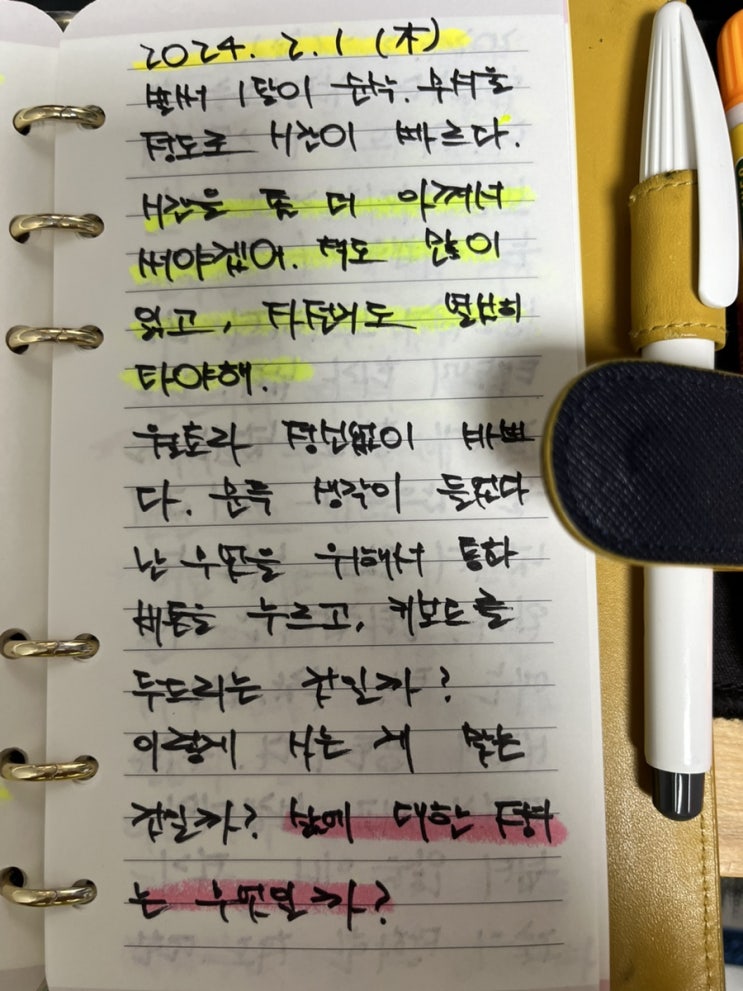 2024. 2. 1 (木)
벌써 1달이 순삭. 무서울
정도로 시간이 빠르다.
시간을 좀 더 아껴서
써야겠어. 책도 많이
읽고, 자전거도 열심히
타야해.
월초라 정신없이 바쁘
다. 문득 생각이 들었다
난 무엇을 위해서 통화
버튼을 누르고, 키보드를
두드리는 것일까?
이렇게 사는 게 맞는
것일까? 삶에 대한 정의
는 무엇일까?